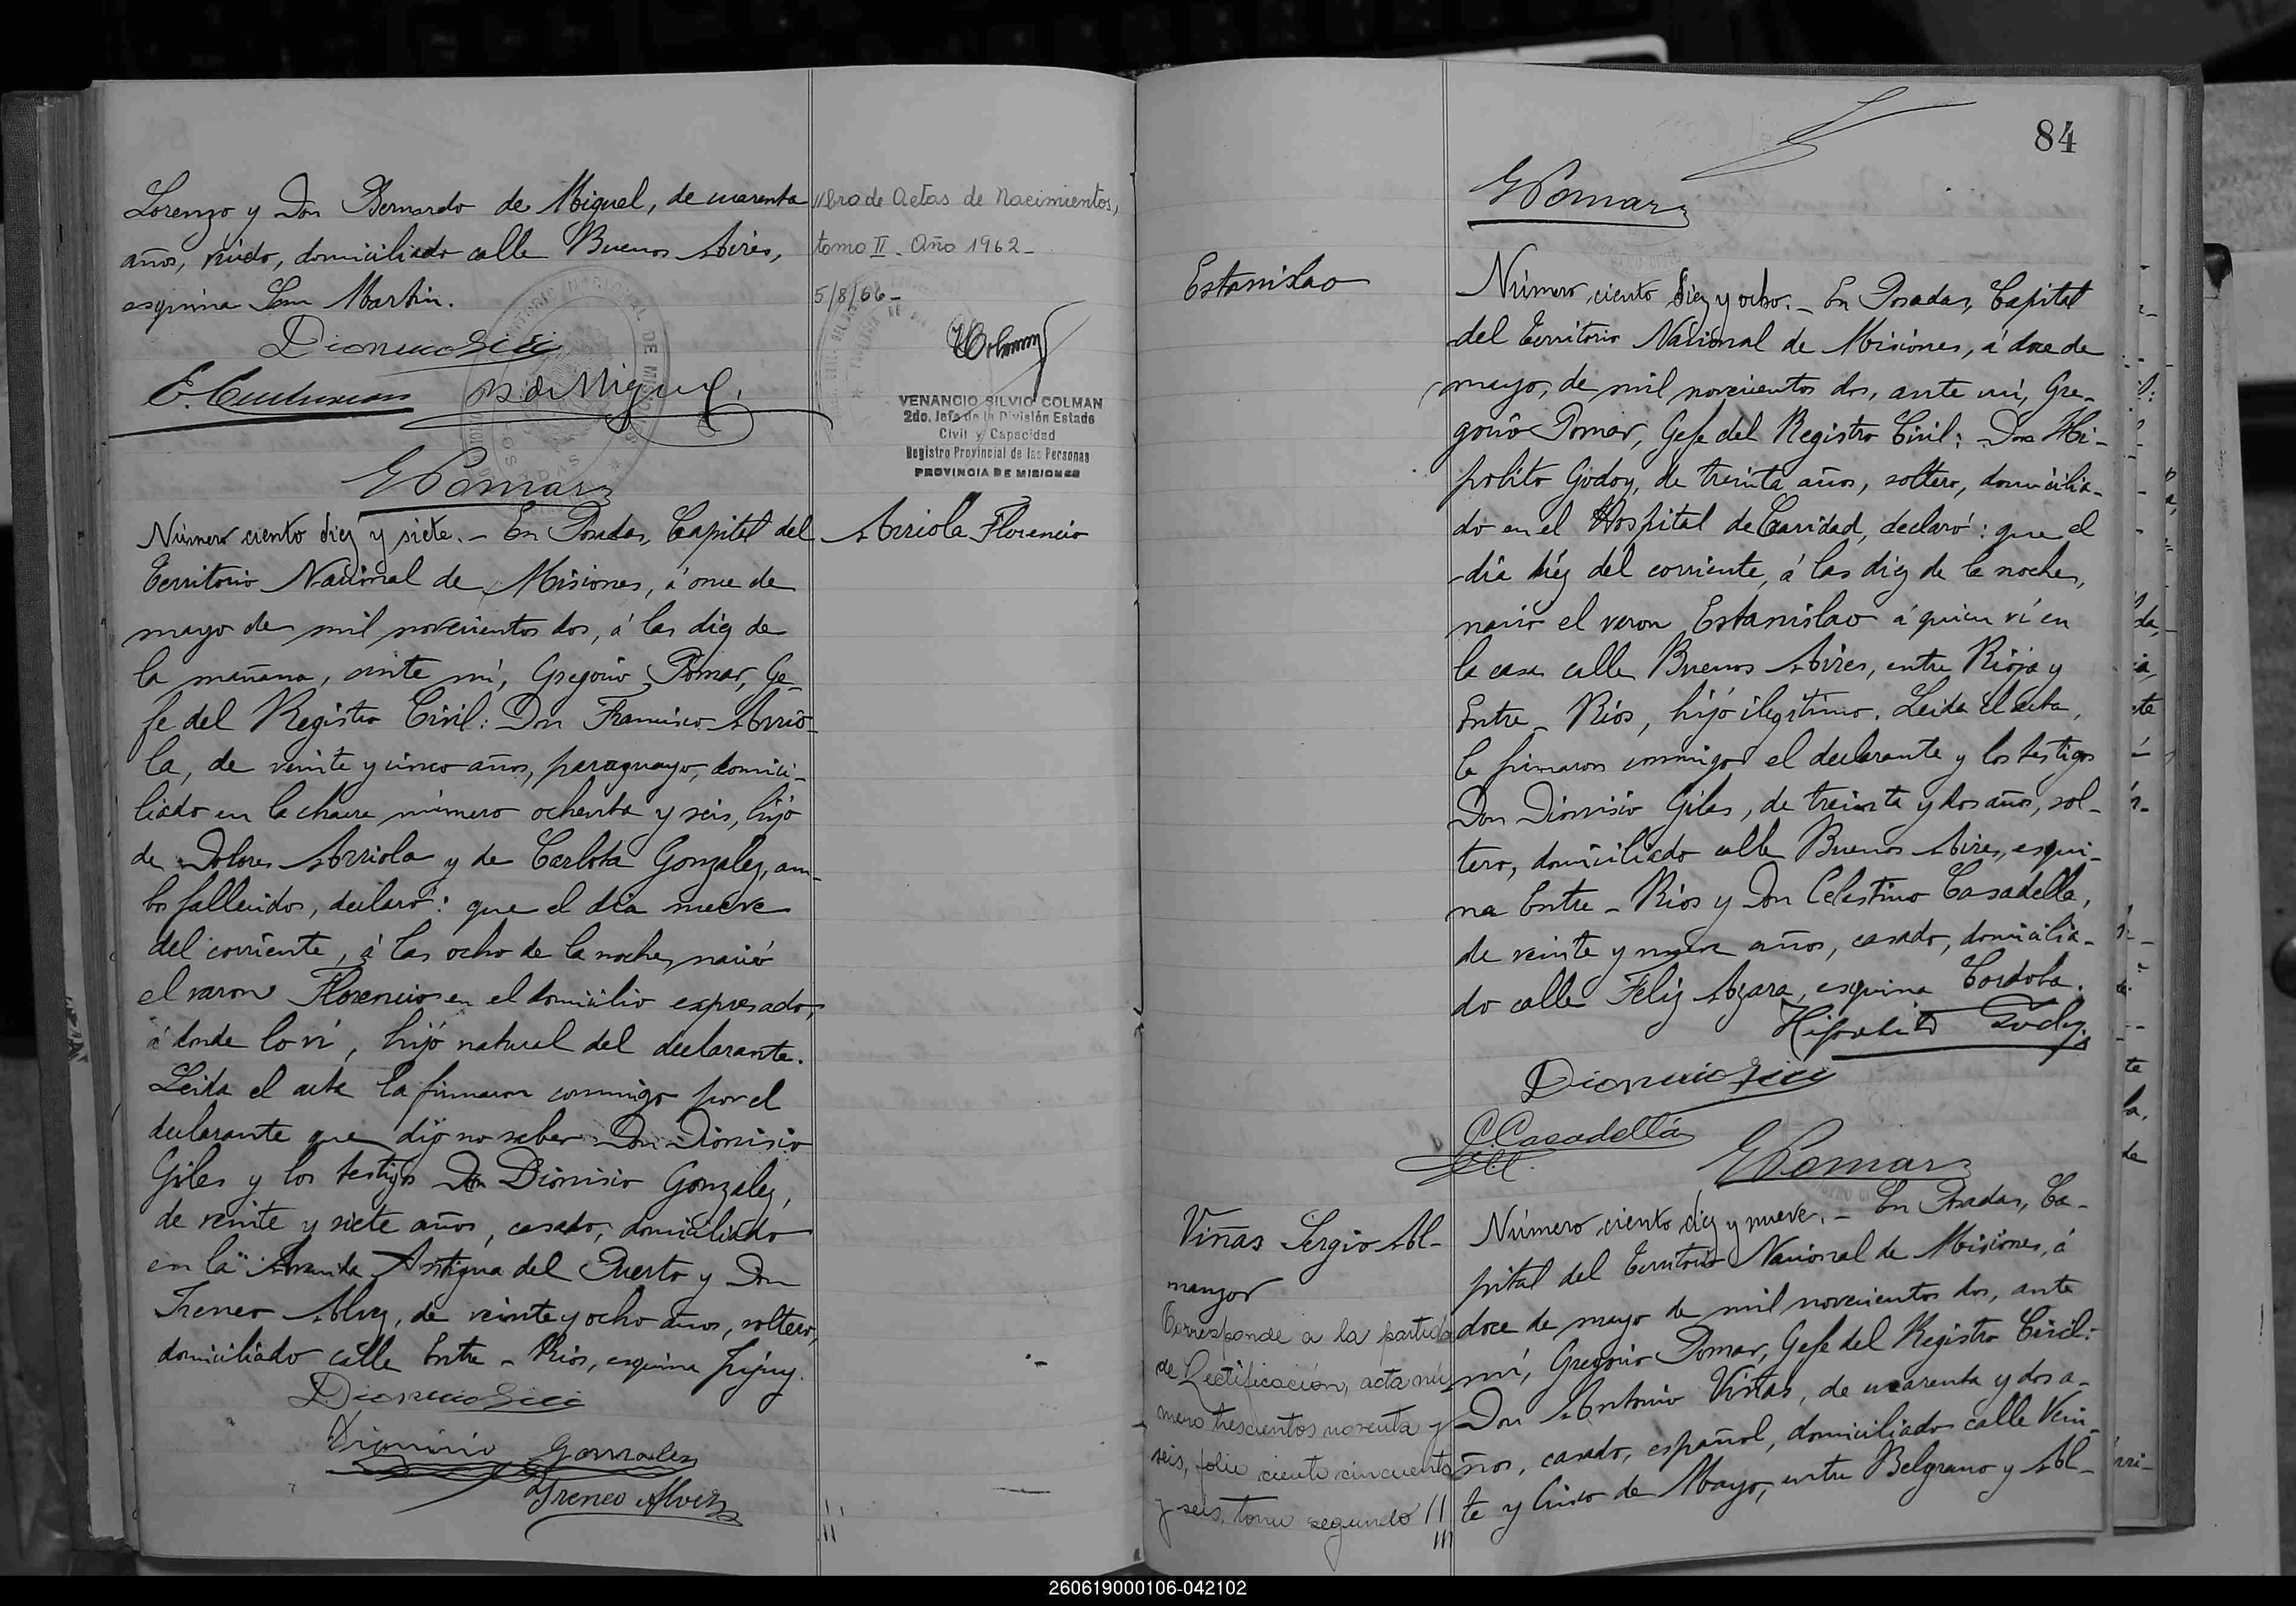 Lorenzo y Don Bernardo de Miguel, de cuarenta
años, viudo, domiciliado calle Buenos Aires,
esquina San Martin.
B. de Miguel
G Pomar
Número ciento diez y siete. - En Posadas, Capital del
Territorio Nacional de Misiones, á once de
mayo de mil novecientos dos, á las diez de
la mañana, ante mí, Gregorio Pomar, Ge-
fe del Registro Civil: Don Francisco Arrio-
la, de veinte y cinco años, paraguayo, domici-
liado en la chacra número ochenta y seis, hijo
de Dolores Arriola y de Carlota Gonzalez, am-
bos fallecidos, declaró: que el dia nueve
del corriente, á las ocho de la noche, nació
el varon Florencio en el domicilio expresado,
á donde lo ví, hijo natural del declarante.
Leida el acta la firmaron conmigo por el
declarante que dijo no saber Don Dionisio
Giles y los testigos Don Dionisio Gonzalez,
de veinte y siete años, casado, domiciliado
en la Avenida Antigua del Puerto y Don
Ireneo Alvez, de veinte y ocho años, soltero,
domiciliado calle Entre-Rios, esquina Jujuy.
Dionicio Gonzalez
Ireneo Alvez
//bro de Actas de Nacimientos,
tomo II - Año 1962 -
5/8/66 -
VENANCIO SILVIO COLMAN
2do. Jefe de la División Estado
Civil y Capacidad
Registro Provincial de las Personas
PROVINCIA DE MISIONES
Arriola Florencio
84
G Pomar
Estanislao
Número ciento diez y ocho. - En Posadas, Capital
del Territorio Nacional de Misiones, á doce de
mayo, de mil novecientos dos, ante mí, Gre-
gorio Pomar, Gefe del Registro Civil: Don Hi-
polito Godoy, de treinta años, soltero, domicilia-
do en el Hospital de Caridad, declaró: que el
dia diez del corriente, á las diez de la noche,
nació el varon Estanislao á quien ví en
la casa calle Buenos Aires, entre Rioja y
Entre-Rios, hijo ilegítimo. Leida el acta,
la firmaron conmigo el declarante y los testigos
Don Dionisio Giles, de treinta y dos años, sol-
tero, domiciliado calle Buenos Aires, esqui-
na Entre-Rios y Don Celestino Casadella,
de veinte y nueve años, casado, domicilia-
do calle Feliz Azara, esquina Cordoba.
Hipolito Godoy
C. Casadellá
G Pomar
Viñas Sergio Al-
manzor
Corresponde a la partida
de Rectificación, acta nú-
mero trescientos noventa y
seis, folio ciento cincuenta
y seis, tomo segundo //
Número ciento diez y nueve. - En Posadas, Ca-
pital del Territorio Nacional de Misiones, á
doce de mayo de mil novecientos dos, ante
mí, Gregorio Pomar, Gefe del Registro Civil:
Don Antonio Viñas, de cuarenta y dos a-
ños, casado, español, domiciliado calle Vein-
te y Cinco de Mayo, entre Belgrano y Al-
260619000106-042102